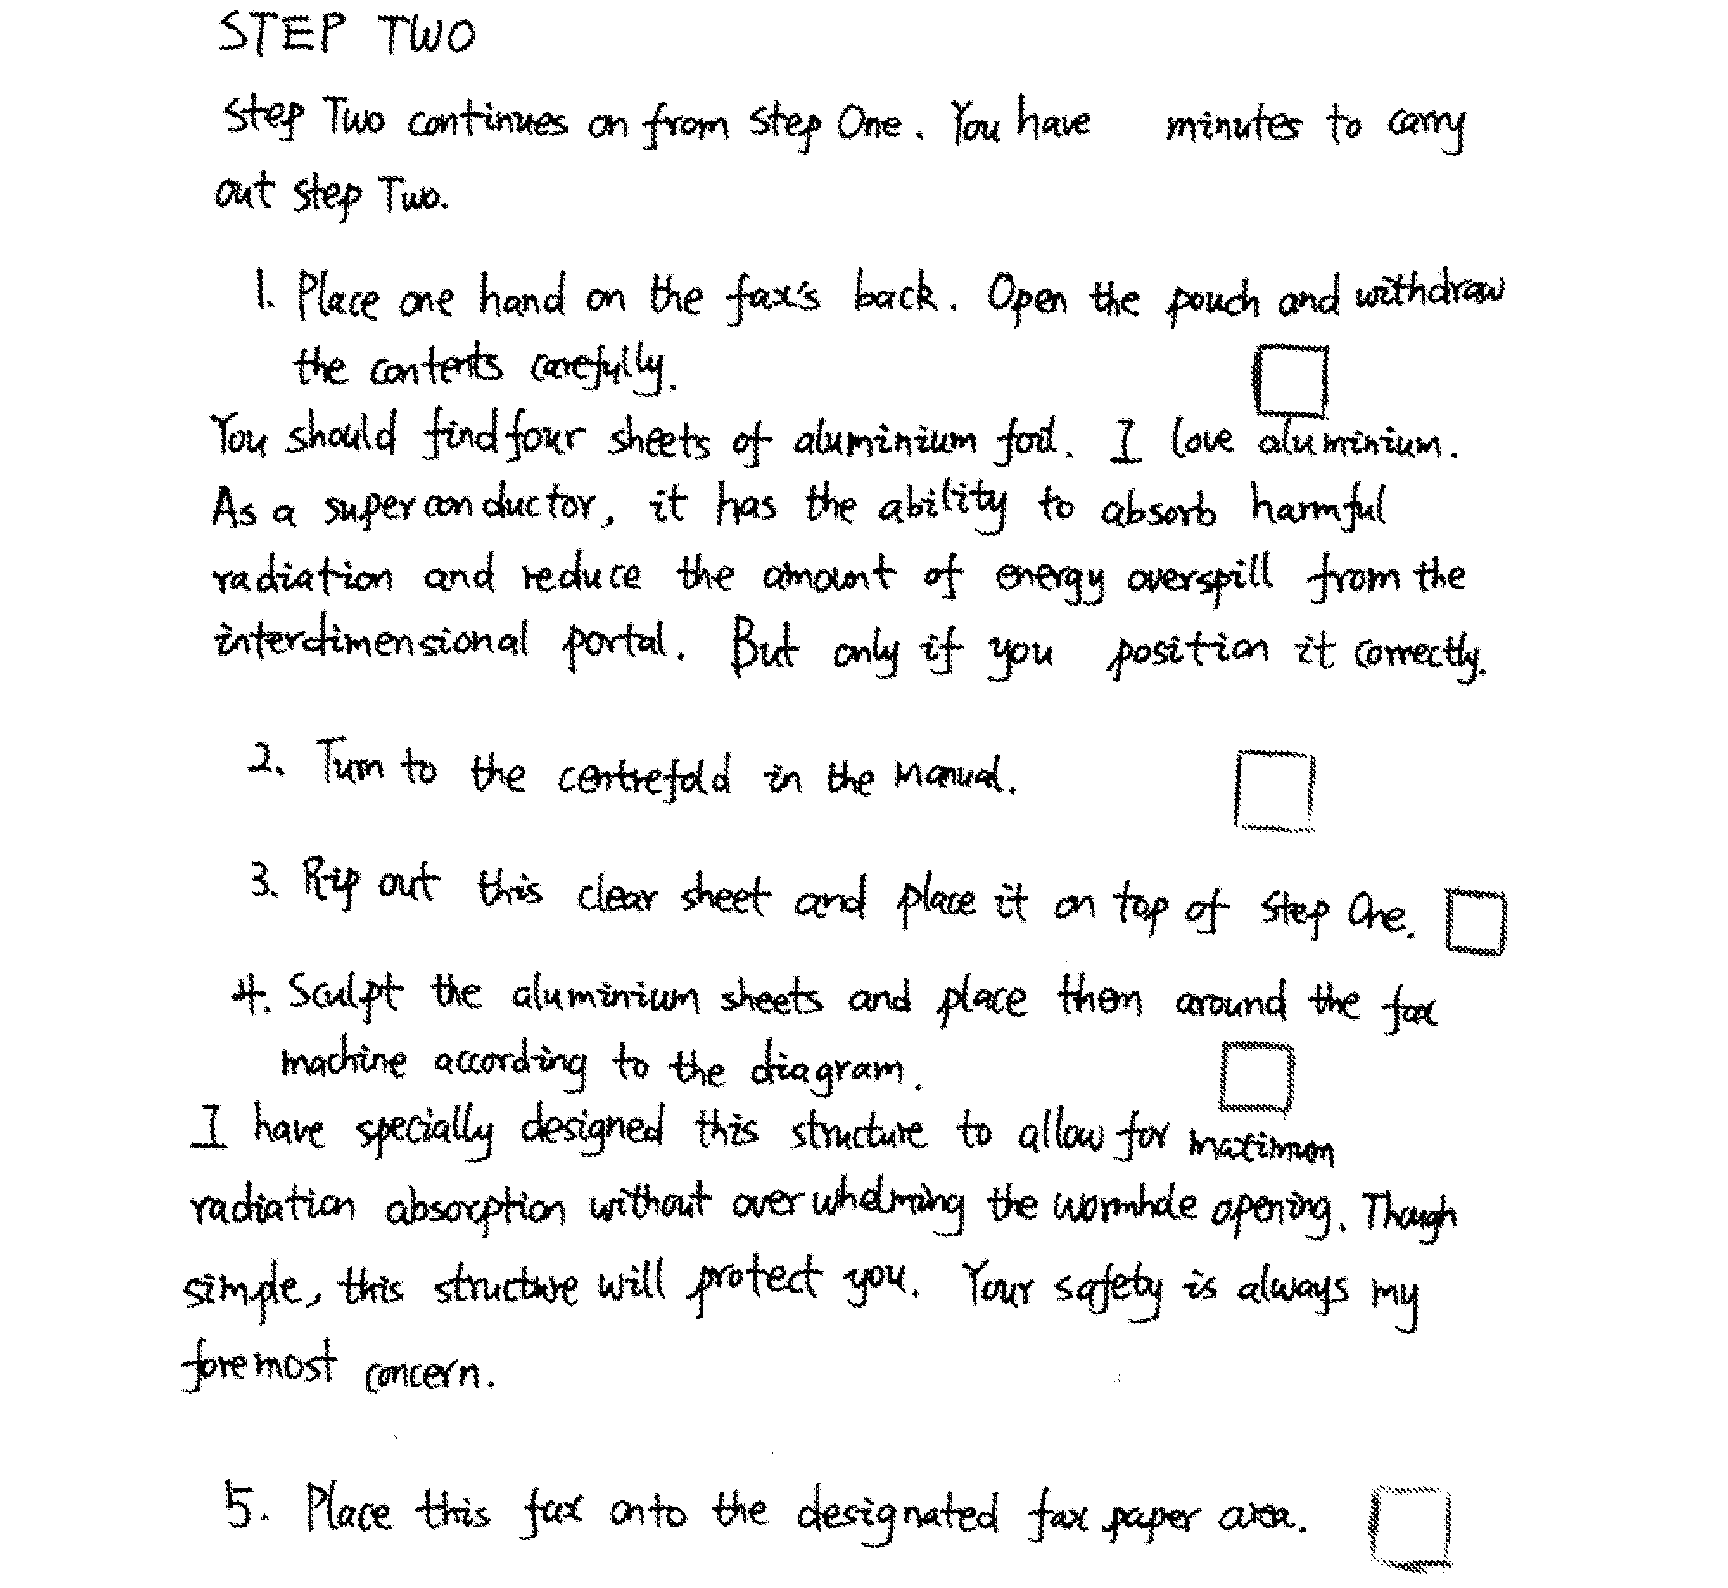 STEP TWO
Step Two continues on from Step One. You have minutes to carry
out step Two.
1. Place one hand on the fax's back. Open the pouch and withdraw
the contents carefully.
You should find four sheets of aluminium foil. I love aluminium.
As a superconductor, it has the ability to absorb harmful
radiation and reduce the amount of energy overspill from the
interdimensional portal. But only if you position it correctly.
2. Turn to the centrefold in the Manual.
3. Rip out this clear sheet and place it on top of Step One.
4. Sculpt the aluminium sheets and place them around the fax
machine according to the diagram.
I have specially designed this structure to allow for maximum
radiation absorption without overwhelming the wormhole opening. Though
simple, this structure will protect you. Your safety is always my
foremost concern.
5. Place this fax onto the designated fax paper area.